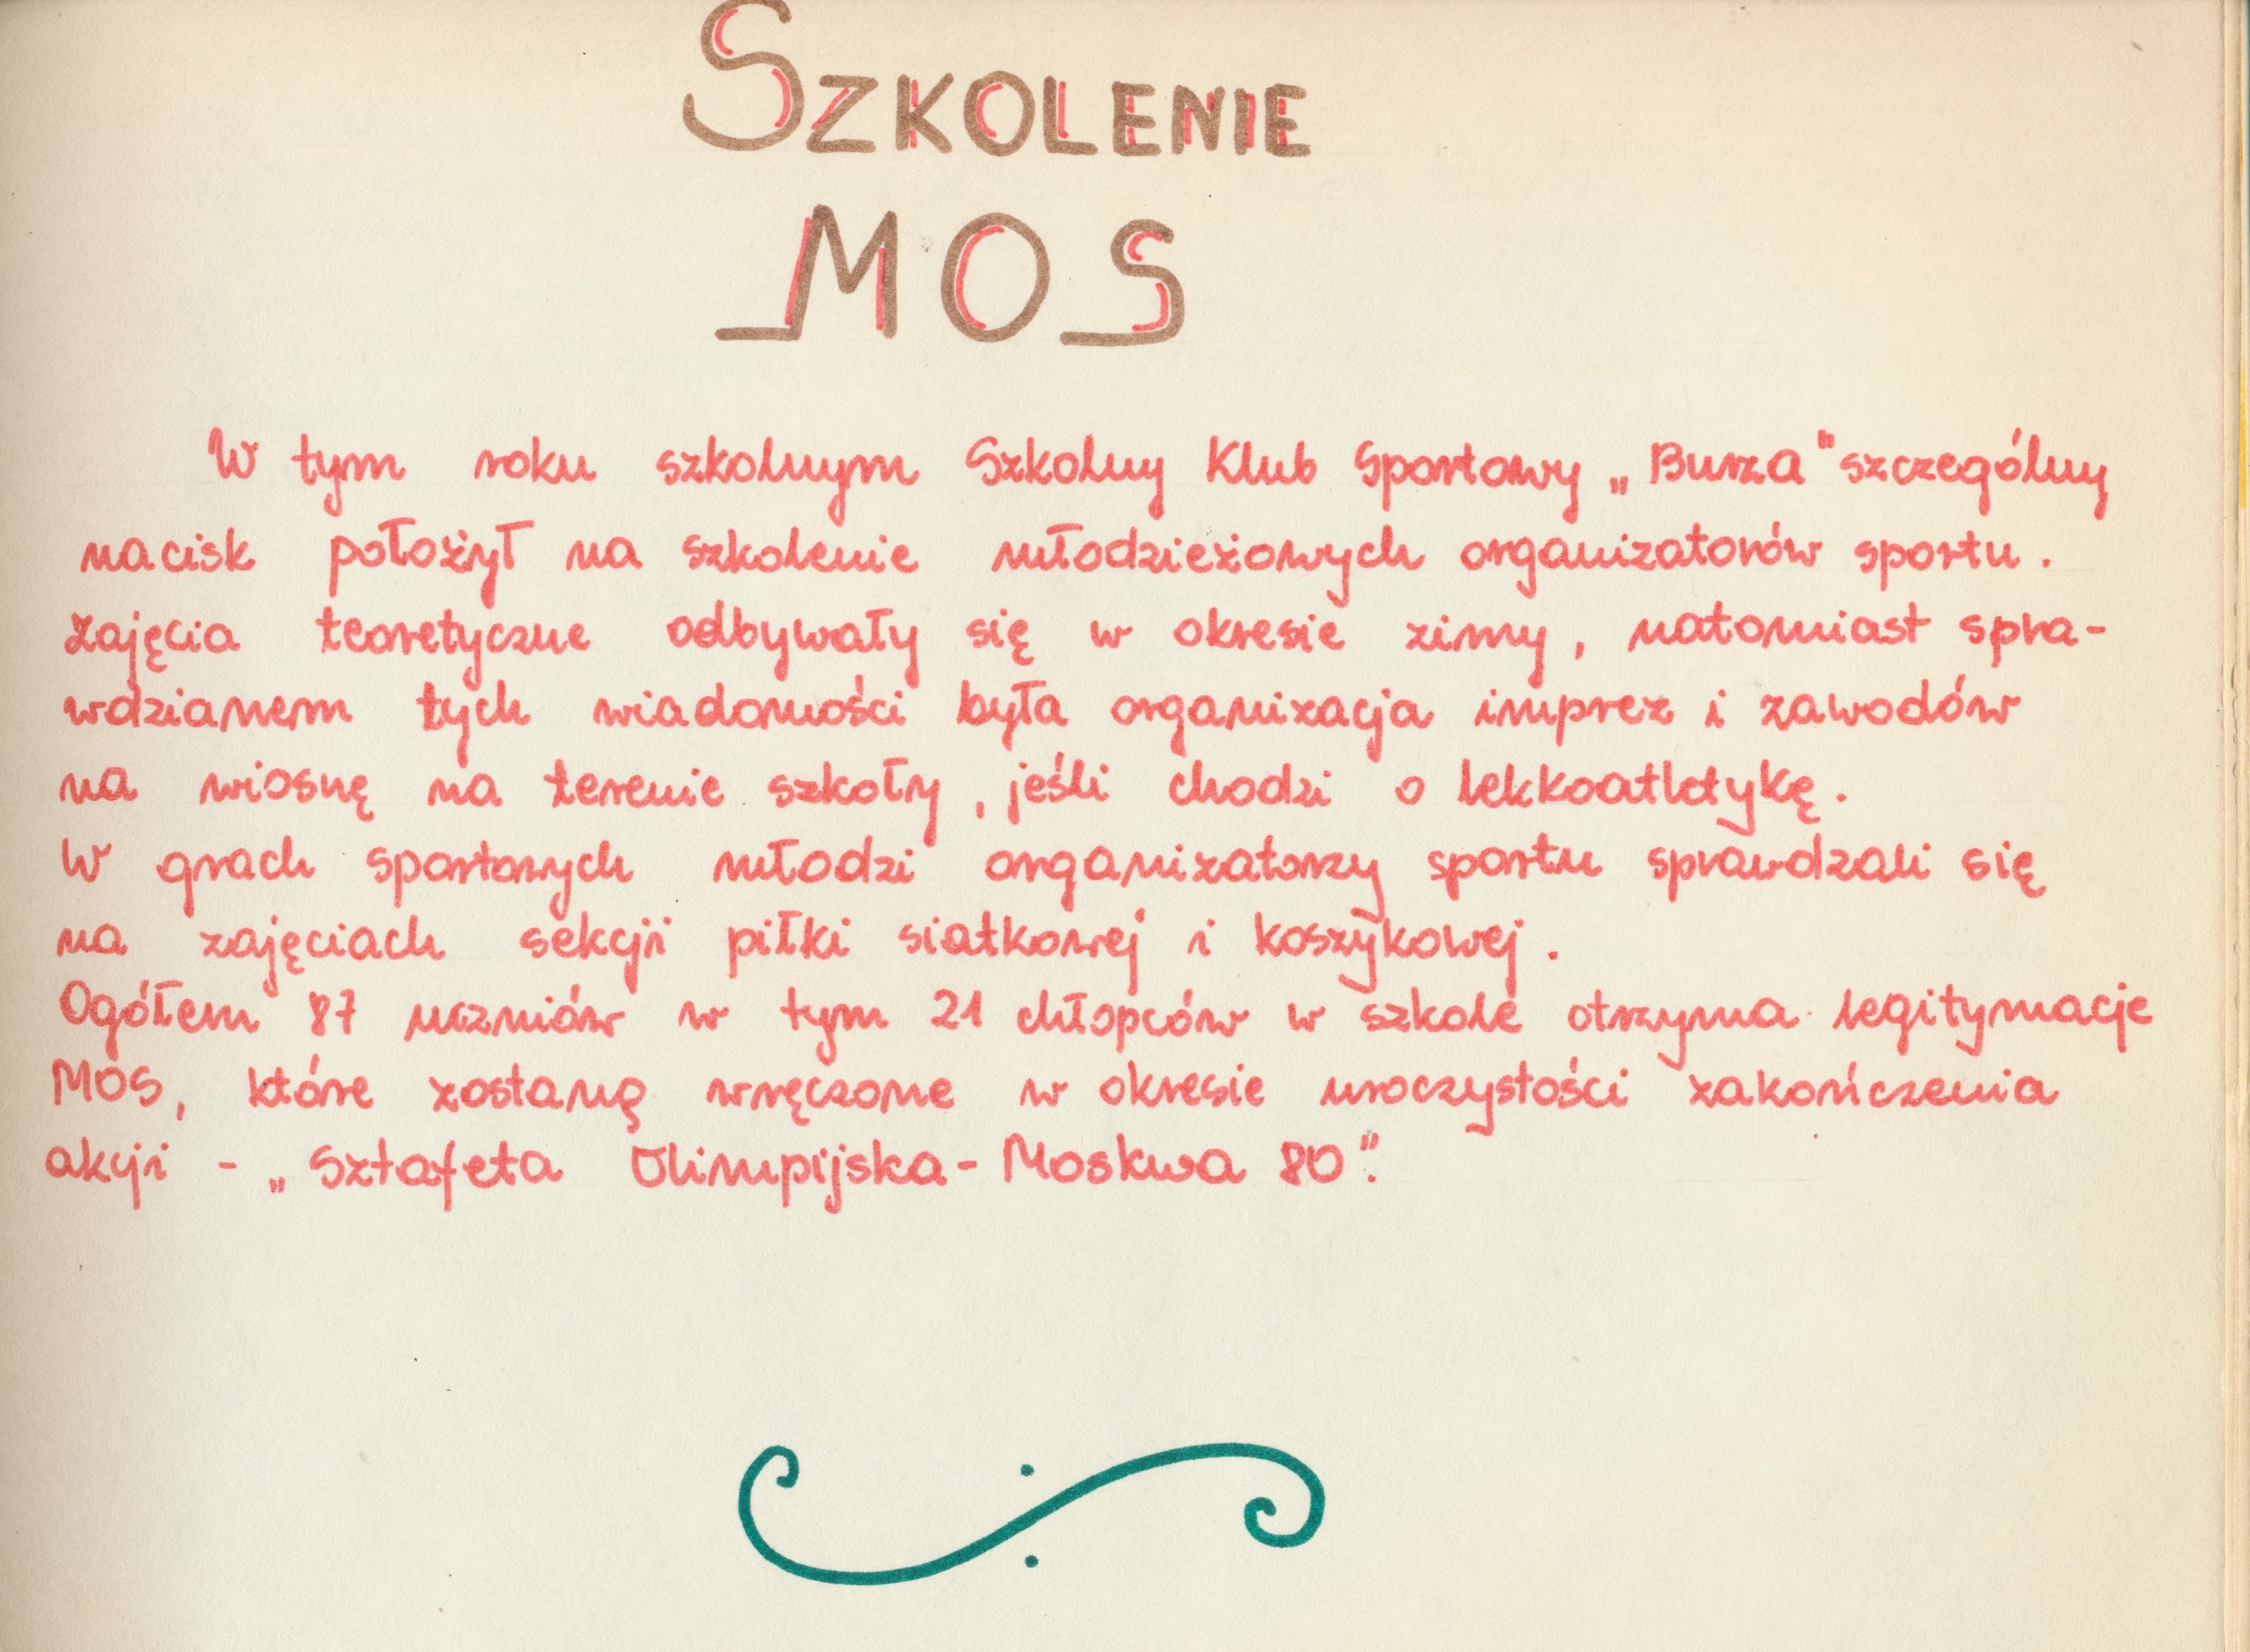 SZKOLENIE
MOS
W tym roku szkolnym Szkolny Klub Sportowy „Burza" szczególny
nacisk położył na szkolenie młodzieżowych organizatorów sportu.
Zajęcia teoretyczne odbywały się w okresie zimy, natomiast spra-
wdzianem tych wiadomości była organizacja imprez i zawodów
na wiosnę na terenie szkoły, jeśli chodzi o lekkoatletykę.
W grach sportowych młodzi organizatorzy sportu sprawdzali się
na zajęciach sekcji piłki siatkowej i koszykowej.
Ogółem 87 uczniów w tym 21 chłopców w szkole otrzyma legitymacje
MOS, które zostaną wręczone w okresie uroczystości zakończenia
akcji - „Sztafeta Olimpijska - Moskwa 80".